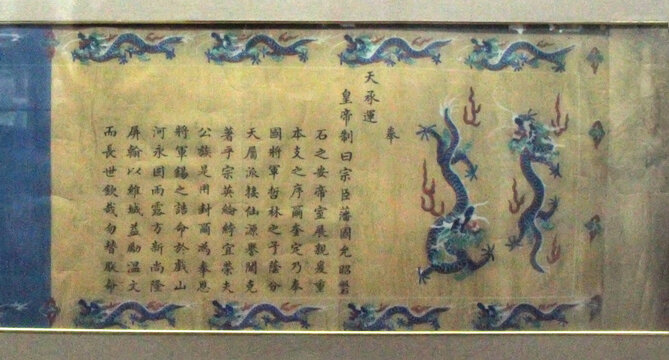 奉
天承運
皇帝制曰宗臣藩國允昭磐
石之安帝室展親爰重
本支之序爾奎定乃奉
國將軍哲林之子蔭分
天屬派接仙源譽聞克
著乎宗英綸綍宜榮夫
公族是用封爾為奉恩
將軍錫之誥命於戲山
河永固雨露方新尚隆
屏翰以維城益勵溫文
而長世欽哉勿替朕命